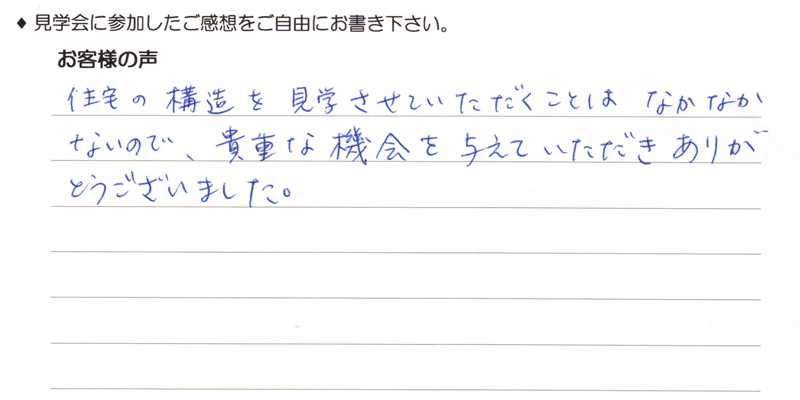 ◆ 見学会に参加したご感想をご自由にお書き下さい。
お客様の声
住宅の構造を見学させていただくことは なかなか
ないので、貴重な機会を与えていただき ありが
とうございました。